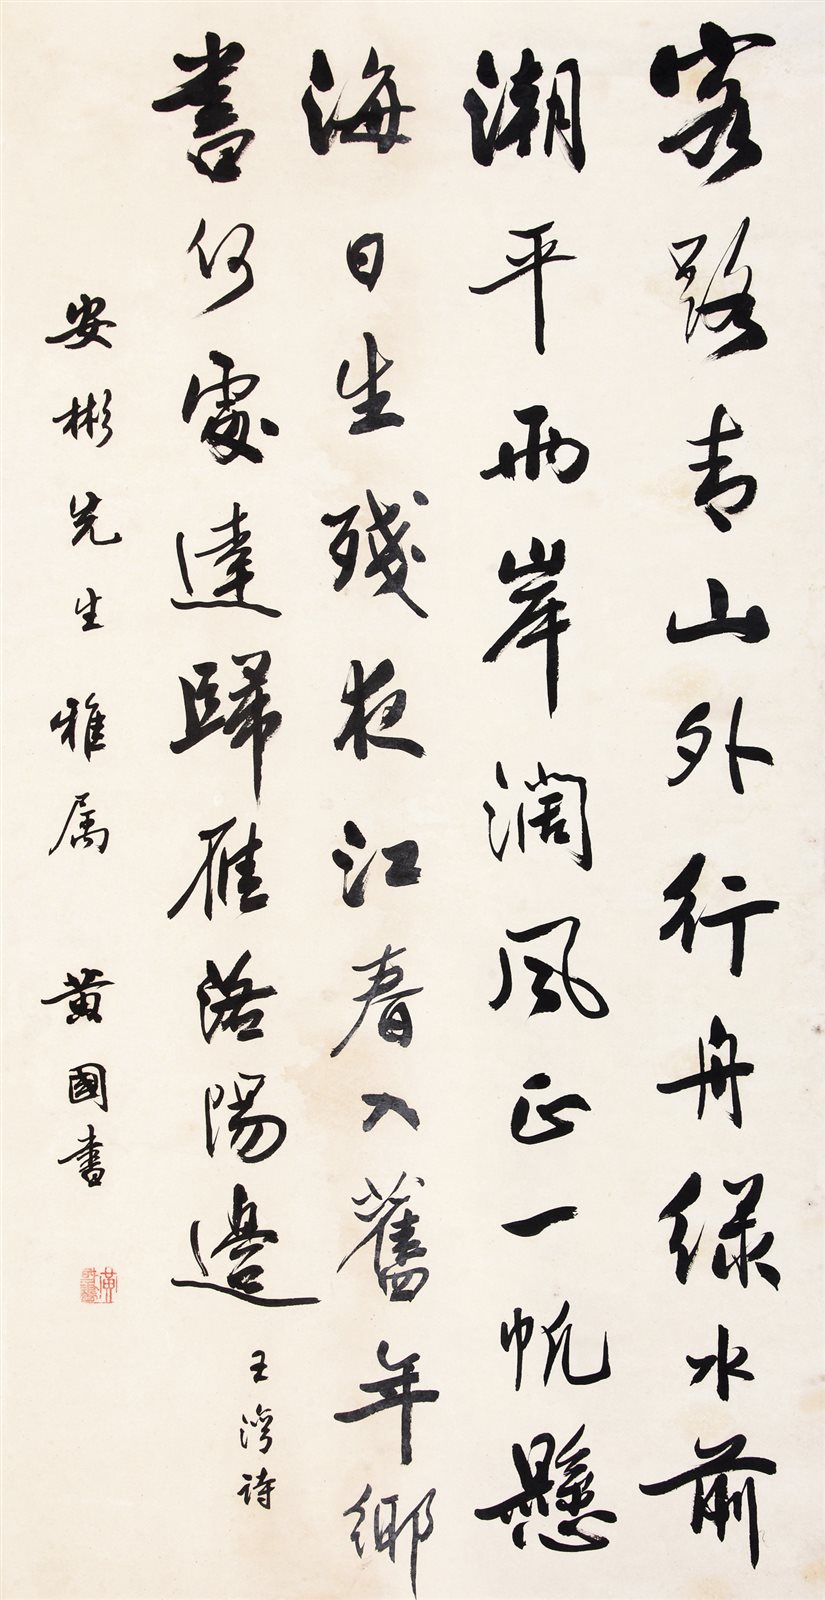 客路青山外行舟綠水前
潮平兩岸濶風正一帆懸
海日生殘夜江春入舊年鄉
書何處達歸雁落陽邊
王灣詩
安彬先生雅属 黃國書